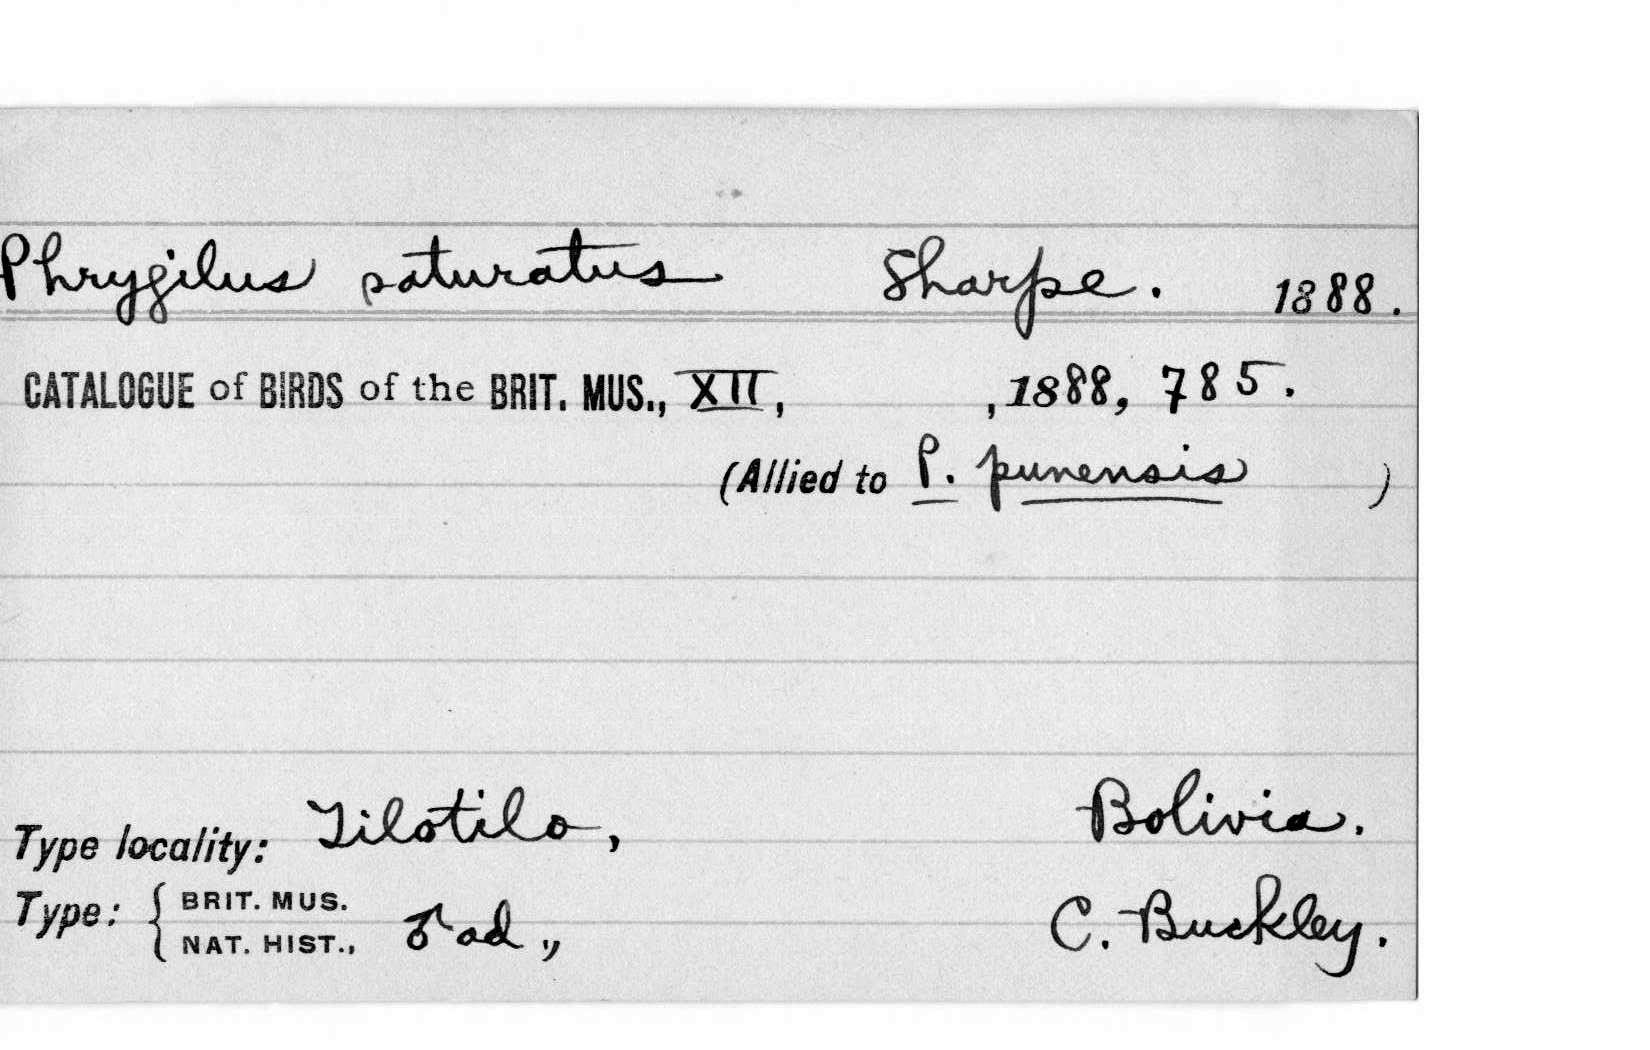 Phrygilus saturatus Sharpe. 1888.
CATALOGUE of BIRDS of the BRIT. MUS., XII, , 1888, 785.
(Allied to P. punensis )
Type locality: Tilotilo, Bolivia.
Type: { BRIT. MUS. NAT. HIST., ♂ ad., C. Buckley.